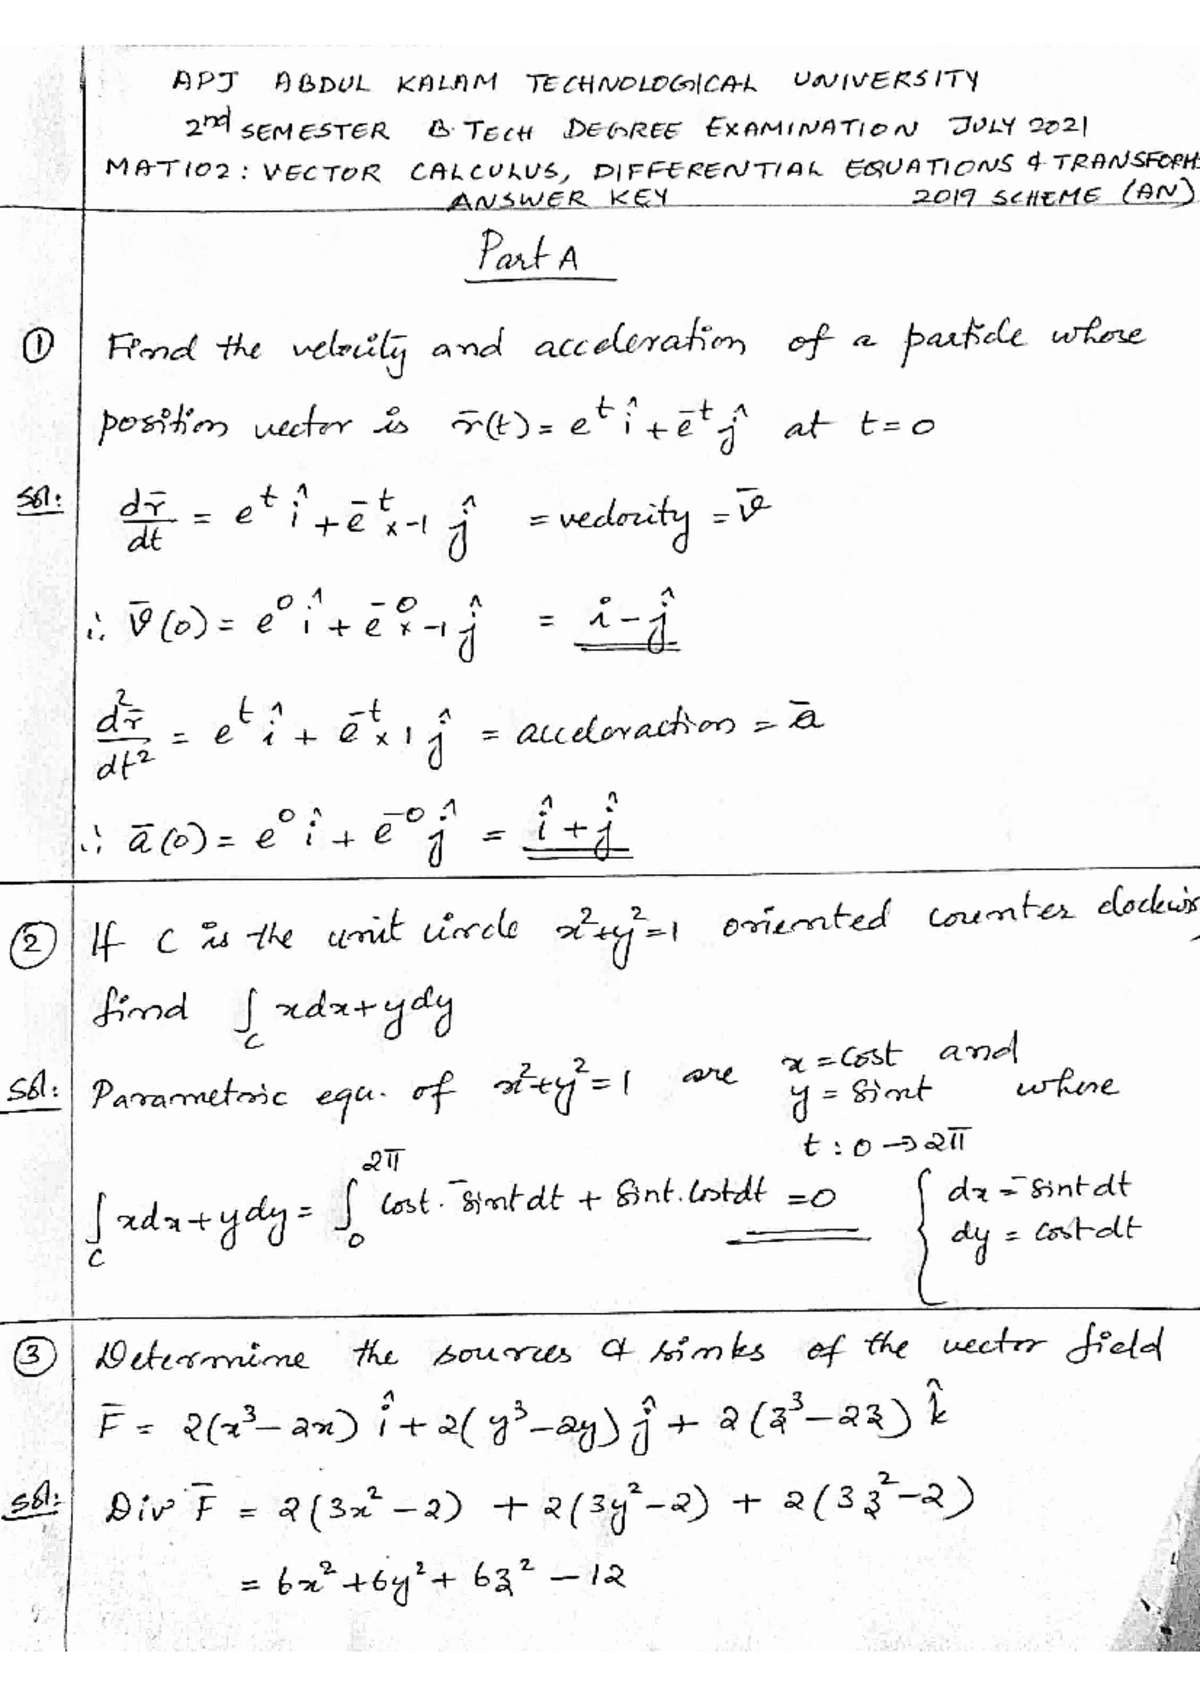 APJ ABDUL KALAM TECHNOLOGICAL UNIVERSITY
2nd SEMESTER B.TECH DEGREE EXAMINATION JULY 2021
MAT102: VECTOR CALCULUS, DIFFERENTIAL EQUATIONS & TRANSFORMS
ANSWER KEY 2019 SCHEME (AN)
Part A
① Find the velocity and acceleration of a particle whose
position vector is r̄(t) = e^t î + e^-t ĵ at t=0
Sol: dr̄/dt = e^t î + e^-t × -1 ĵ = velocity = v̄
∴ v̄(0) = e^0 î + e^-0 × -1 ĵ = i - ĵ
d²r̄/dt² = e^t î + e^-t × 1 ĵ = acceleraction = ā
∴ ā(0) = e^0 î + e^-0 ĵ = î + ĵ
② If C is the unit circle x²+y²=1 oriented counter clockwis
find ∫_C xdx+ydy
Sol: Parametric equ. of x²+y²=1 are x = cost and
y = sint where
t : 0 → 2π
∫_C xdx+ydy = ∫_0^2π cost. -sint dt + sint.cost dt = 0 { dx = -sint dt
dy = cost dt
③ Determine the sources & sinks of the vector field
F̄ = 2(x³-2x) î + 2(y³-2y) ĵ + 2(z³-2z) k̂
Sol: Div F̄ = 2(3x²-2) + 2(3y²-2) + 2(3z²-2)
= 6x²+6y²+6z²-12